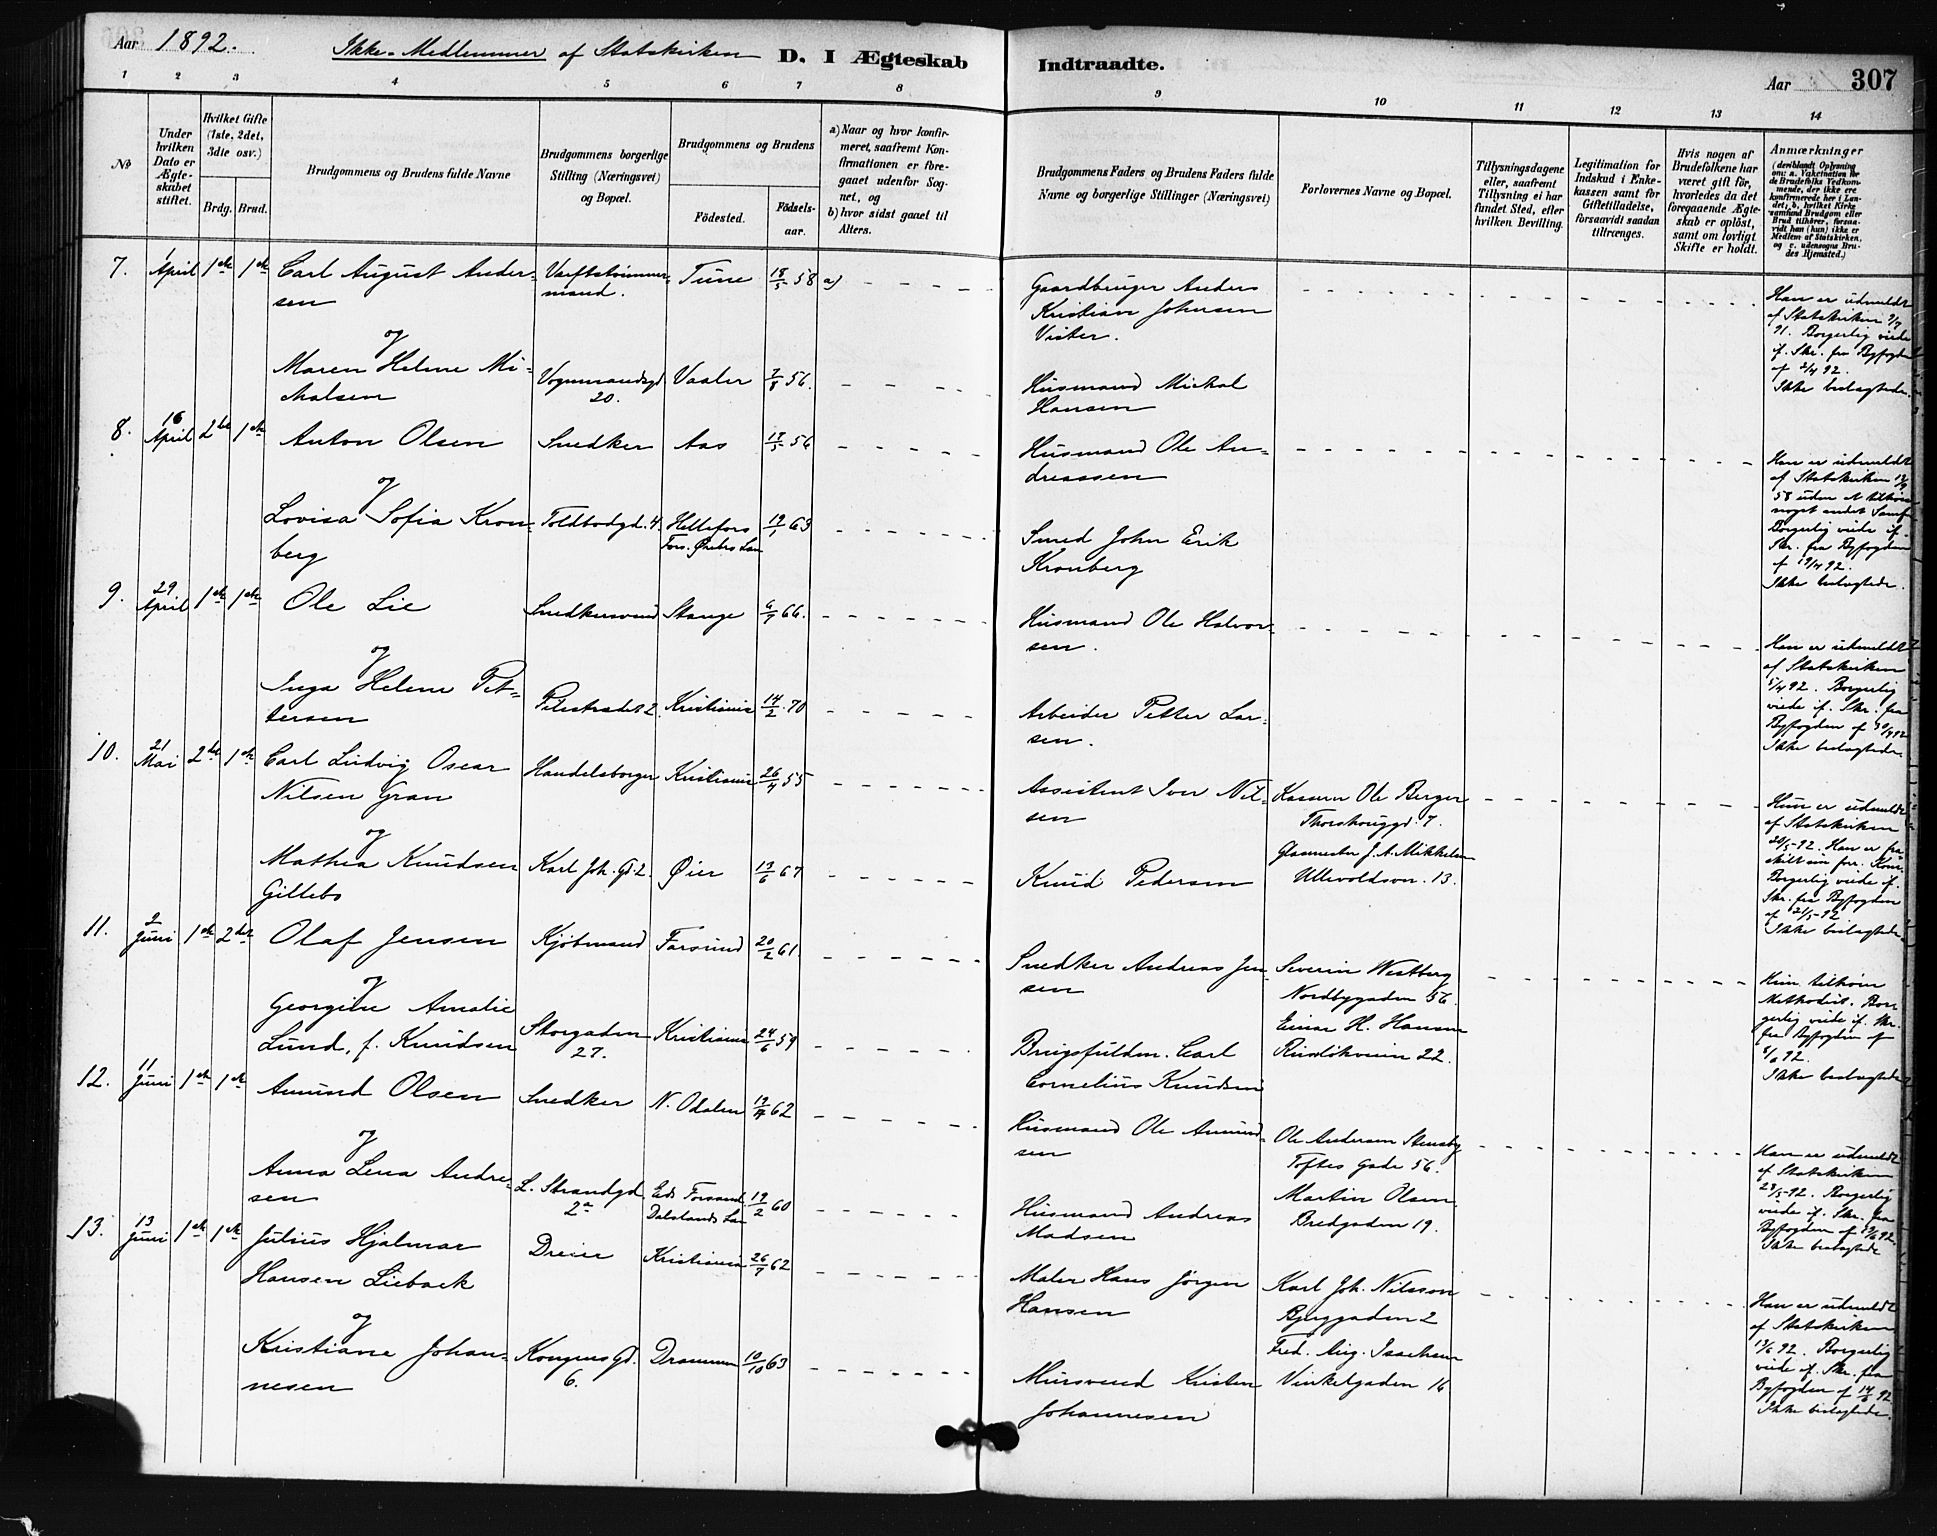 Aar 1892. Ikke-Medlemmer af Statskirken D. I Ægteskab Indtraadte. Aar 307
1 2 3 4 5 6 7 8 9 10 11 12 13 14
No
Under hvilken Dato er Ægteskabet stiftet.
Hvilket Gifte (1ste, 2det, 3die osv.)
Brdg. Brud.
Brudgommens og Brudens fulde Navne
Brudgommens borgerlige Stilling (Næringsvei) og Bopæl.
Brudgommens og Brudens
Födested. Födselsaar.
a) Naar og hvor konfirmeret, saafremt Konfirmationen er foregaaet udenfor Sognet, og
b) hvor sidst gaaet til Alters.
Brudgommens Faders og Brudens Faders fulde Navne og borgerlige Stillinger (Næringsvei)
Forlovernes Navne og Bopæl.
Tillysningsdagene eller, saafremt Tillysning ei har fundet Sted, efter hvilken Bevilling.
Legitimation for Indskud i Enkekassen samt for Giftetilladelse, forsaavidt saadan tiltrænges.
Hvis nogen af Brudefolkene har været gift før, hvorledes da det foregaaende Ægteskab er opløst, samt om lovligt Skifte er holdt.
Anmærkninger
(deriblandt Oplysning om: a. Vakcination for de Brudefolks Vedkommende, der ikke ere konfirmerede her i Landet, b. hvilket Kirkesamfund Brudgom eller Brud tilhører, forsaavidt han (hun) ikke er Medlem af Statskirken, og c. udensogns Brudes Hjemsted.)
7. April 1ste 1ste Carl August Andersen Værftstømmermand. Tune 18/5 58 a)
Gaardbruger Anders Kristian Johnsen Vister.
Han er udmeldt af Statskirken 91. Borgerlig viede if. Skr. fra Byfogden af 2/4 92. Ikke beslægtede.
og
Maren Helene Michalsen Vognmandsgd 20. Vaaler 7/8 56.
Husmand Michal Hansen
8. 16 April 2det 1ste Anton Olsen Snedker Aas 56
Husmand Ole Andreassen
Han er udmeldt af Statskirken 58 uden at tilhøre noget andet Samf. Borgerlig viede if. Skr. fra Byfogden af 19/4 92. Ikke beslægtede.
og
Lovisa Sofia Kronberg Toldbodgd. 4. Hellefors Fors. Ørebro Lan 19/1 63
Smed John Erik Kronberg
9. 29 April 1ste 1ste Ole Lie Snedkersvend Stange 6/7 66.
Husmand Ole Halvorsen.
Han er udmeldt af Statskirken 5/4 92. Borgerlig viede if. Skr. fra Byfogden af 30/4 92 Ikke beslægtede.
og
Inga Helene Pettersen Pilestrædet 2. Kristiania 14/2 70
Arbeider Petter Larsen.
10. 21 Mai 2det 1ste Carl Ludvig Oscar Nilsen Gran Handelsborger Kristiania 26/4 55
Assistent Iver Nilsen
Kasserer Ole Berger Thorshouggd. 7.
Hun er udmeldt af Statskirken 20/5-92. Han er fraskilt sin forr. Kone. Borgerlig viede if. Skr. fra Byfogden af 21/5-92. Ikke beslægtede.
og
Mathea Knudsen Gillebo Karl Joh. Gd. 2. Øier 19/6 67
Knud Pedersen
Glasmester J. A. Mikkelsen Ullevoldsvn. 13.
11. 2 Juni 1ste 2det Olaf Jensen Kjöbmand Farsund 20/2 61.
Snedker Andreas Jensen
Severin Westberg Nordbygaden 56.
Hun tilhører Methodist. Borgerlig viede if. Skr. fra Byfogden af 8/6 92. Ikke beslægtede
og
Georgine Amalie Lund, f. Knudsen Storgaden 27. Kristiania 24/6 59
Brugsfuldm. Carl Cornelius Knudsen
Einar H. Hansen 22.
12. 11 Juni 1ste 1ste Amund Olsen Snedker N. Odalen 62
Husmand Ole Amundsen
Ole Andersen Stensby Toftes Gade 56.
Han er udmeldt af Statskirken 28/5-92. Borgerlig viede if. Skr. fra Byfogden af 92. Ikke beslægtede
og
Anna Lena Andresen L. Strandgd. 2a Dalslands Lan 19/2 60
Husmand Andreas Madsen
Martin Olsen Bredgaden 19.
13. 13 Juni 1ste 1ste Julius Hjalmar Hansen Liebaek Dreier Kristiania 26/7 62
Maler Hans Jörgen Hansen
Karl Joh. Nilsson Bjerggaden 2
Han er udmeldt af Statskirken 13/6 92. Borgerlig viede if. Skr. fra Byfogden af 14/6 92. Ikke beslægtede.
og
Kristiane Johannesen Kongens Gd. 6. Drammen 10/10 63
Mursvend Kristen Johannesen
Fred. Aug. Isachsen Vinkelgaden 16